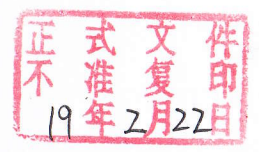 正式文件
不准复印
19年2月22日